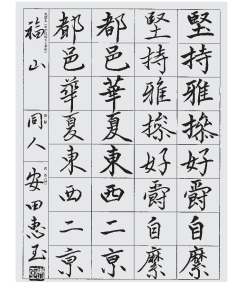 堅持雅操好爵自縻
堅持雅操好爵自縻
都邑華夏東西二亰
都邑華夏東西二亰
福山 同人 安田恵玉